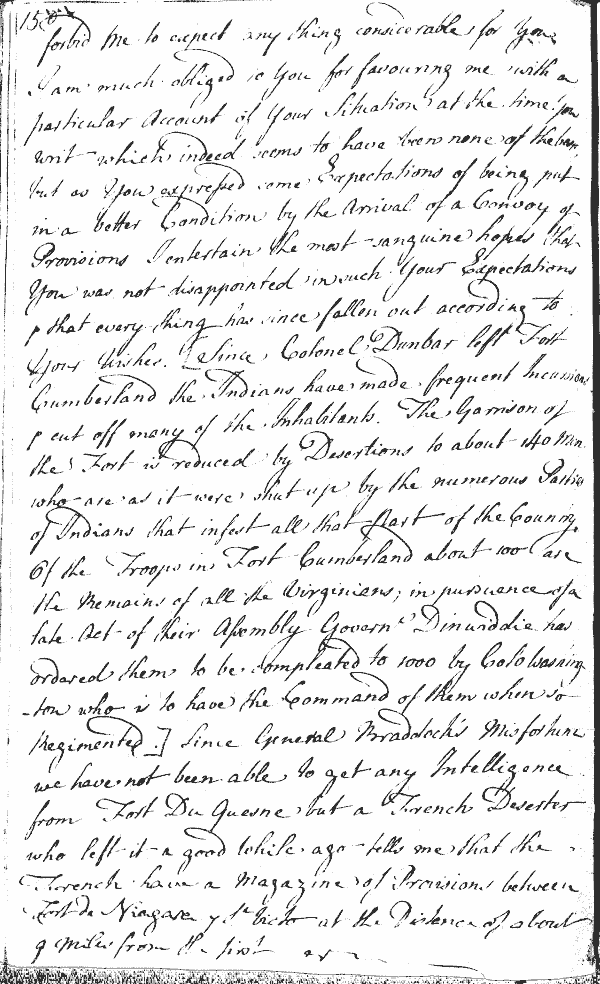 forbid me to expect any thing considerable for You
I am much obliged to You for favouring me with a
particular Account of Your Situation at the time You
writ which indeed seems to have been none of the
but as You expressed some Expectations of being put
in a better Condition by the Arrival of a Convoy of
Provisions I entertain the most sanguine hopes that
You was not disappointed in such Your Expectations
& that every thing has since fallen out according to
Your Wishes. [Since Colonel Dunbar left Fort
Cumberland the Indians have made frequent Incursions
& cut off many of the Inhabitants. The Garrison of
the Fort is reduced by Desertions to about 140 Men
who are as it were shut up by the numerous Parties
of Indians that infest all that Part of the Country.
Of the Troops in Fort Cumberland about 100 are
the Remains of all the Virginians; in pursuance of a
late Act of their Assembly Govern.r Dinwiddie has
ordered them to be compleated to 1000 by Colo Washing
-ton who is to have the Command of them when so
Regimented.] Since General Braddock's Misfortune
we have not been able to get any Intelligence
from Fort Du Quesne but a French Deserter
who left it a good while ago tells me that the
French have a Magazine of Provisions between
Fort de Niagara & at the Distance of about
9 Miles from the first